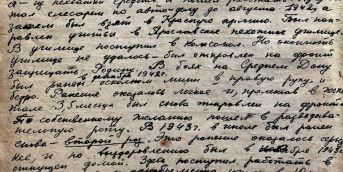 а - щ механики средней и
тов слесарем по автоделу до августа 1942г
зимой был взят в Красную армию. Был нап-
равлен учиться в Ярославское пехотное училище.
В училище поступил в Комсомол. Но окончить
училище не удалось - был отправлен на фронт
защищать Родину. В боях на Среднем Дону
был ранен осколком мины в правую руку и
бедро. Ранение оказалось легкое и, пролежав в госпи-
тале 3,5 месяца был снова отправлен на фронт.
По собственному желанию пошел в разведыва-
тельную роту. В 1943г. в июле был ранен
снова - второй раз. Это ранение оказалось
нее, и по выздоровлению был в ноябре 1943г.
отпущен домой. Здесь поступил работать в